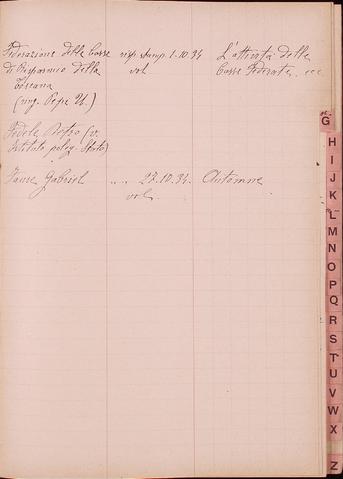 Federazione delle Casse risp. stamp. 1-10.34 L'attività delle
di Risparmio della vol Casse Federate, ecc
Toscana
(ing. Pepe U.)
Fedele Pietro (v.
Istituto, poleg. Stato)
Faure Gabriel " " 27.10.34. Automne
vol.
G
H
I
J
K
L
M
N
O
P
Q
R
S
T
U
V
W
X
Z